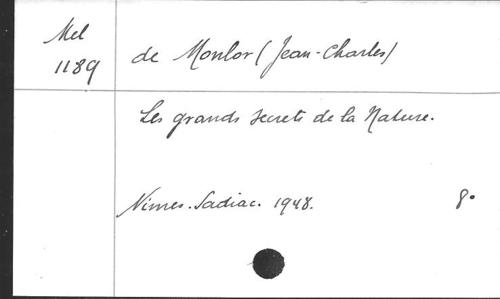 Mel
1189
de Monlor (Jean-Charles)
Les grands secrets de la Nature.
Nimes. Sadiac. 1948. 8°